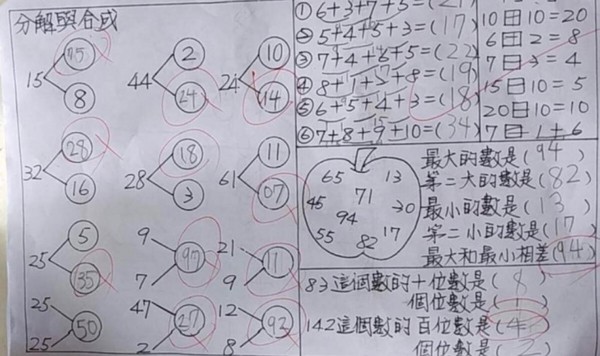 分解與合成
15 75 8
44 2 24
24 10 14
32 28 16
28 18 3
61 11 07
25 5 35
9 7 97
21 9 11
25 25 50
47 2 27
12 8 92
① 6+3+7+5=(21)
② 5+4+5+3=(17)
③ 7+4+6+5=(22)
④ 8+1+2+8=(19)
⑤ 6+5+4+3=(18)
⑥ 7+8+9+10=(34)
10 10=20
6 2=8
7 3=4
15 10=5
20 10=10
7 1+6
65 13
45 71 30
94
55 82 17
最大的數是(94)
第二大的數是(82)
最小的數是(13)
第二小的數是(17)
最大和最小相差(94)
83這個數的十位數是(8)
個位數是( )
142這個數的百位數是(4)
個位數是(2)